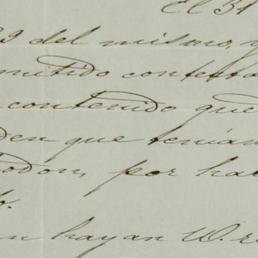 El 31
9 del mismo, y
mitido contesta
contenido que
den que tenían
todon, por ha
do.
n hayan W. r